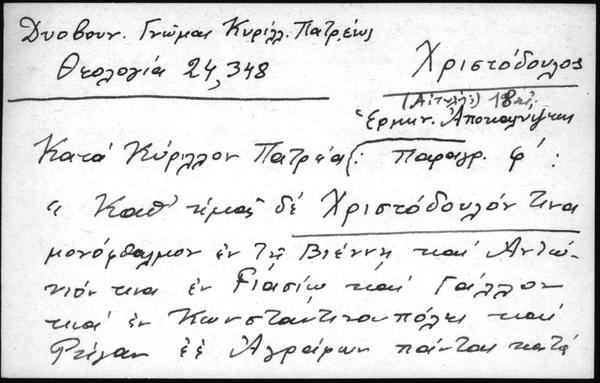 Δυοβουν. Γνῶμαι Κυρίλλ. Πατρέως
Θεολογία 24, 348
Χριστόδουλος
18
Ἑρμην. Ἀποκαλύψεως
Κατά Κύριλλον Πατρέα: παραγρ. φ´:
"Καθ' ἡμᾶς δέ Χριστόδουλόν τινα
μονόφθαλμον ἐν τῇ Βιέννῃ καί Ἀντώ-
νιόν τινα ἐν Γιασίῳ καί Γάλλον
καί ἐν Κωνσταντινουπόλει καί
Ρήγαν ἐξ Ἀγράφων πάντας κατά